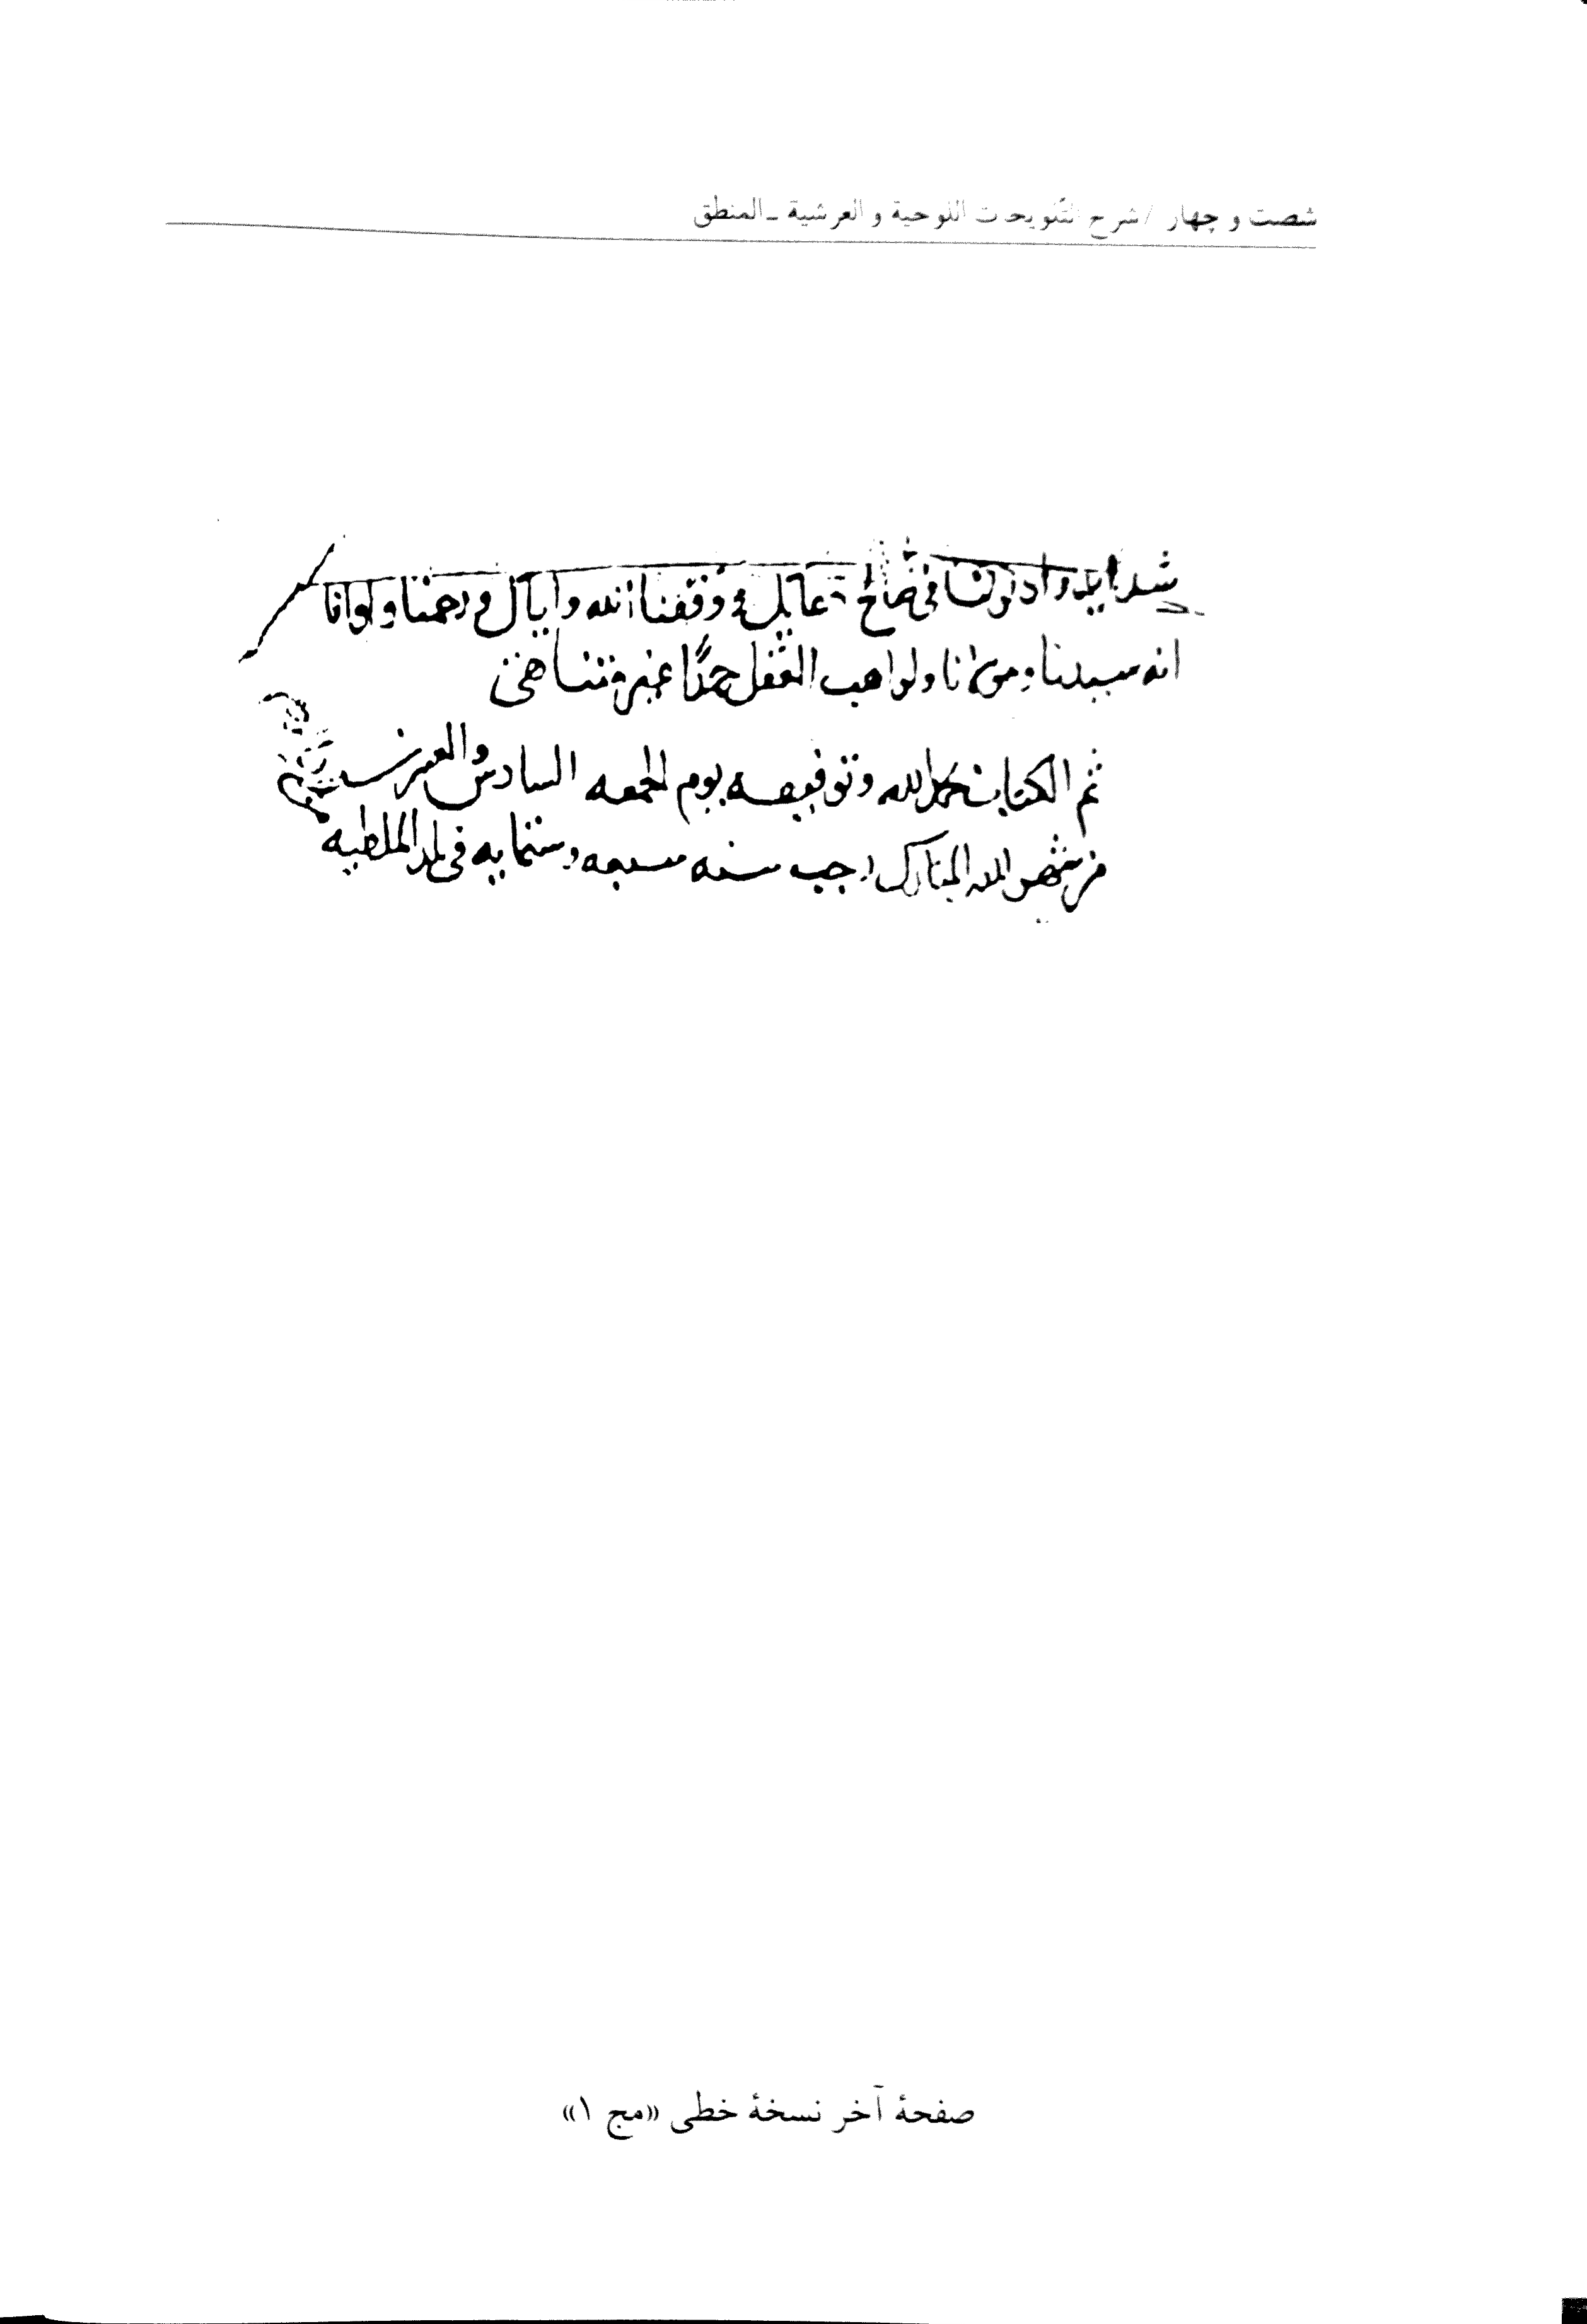 شصت و چهار / شرح التلویحات اللوحیة و العرشیة ـ المنطق
واذكرنا فى صالح دعائك وفقنا الله واياك ورحمنا
انه سيدنا ومولانا ولواهب العقل حمدا غير متناهى
تم الكتاب بحمد الله وتوفيقه يوم الجمعه السادس والعشرين
من شهر الله المبارك رجب سنه سبعه وستمايه فى بلد الملطيه
صفحهٔ آخر نسخهٔ خطی «مج ۱»